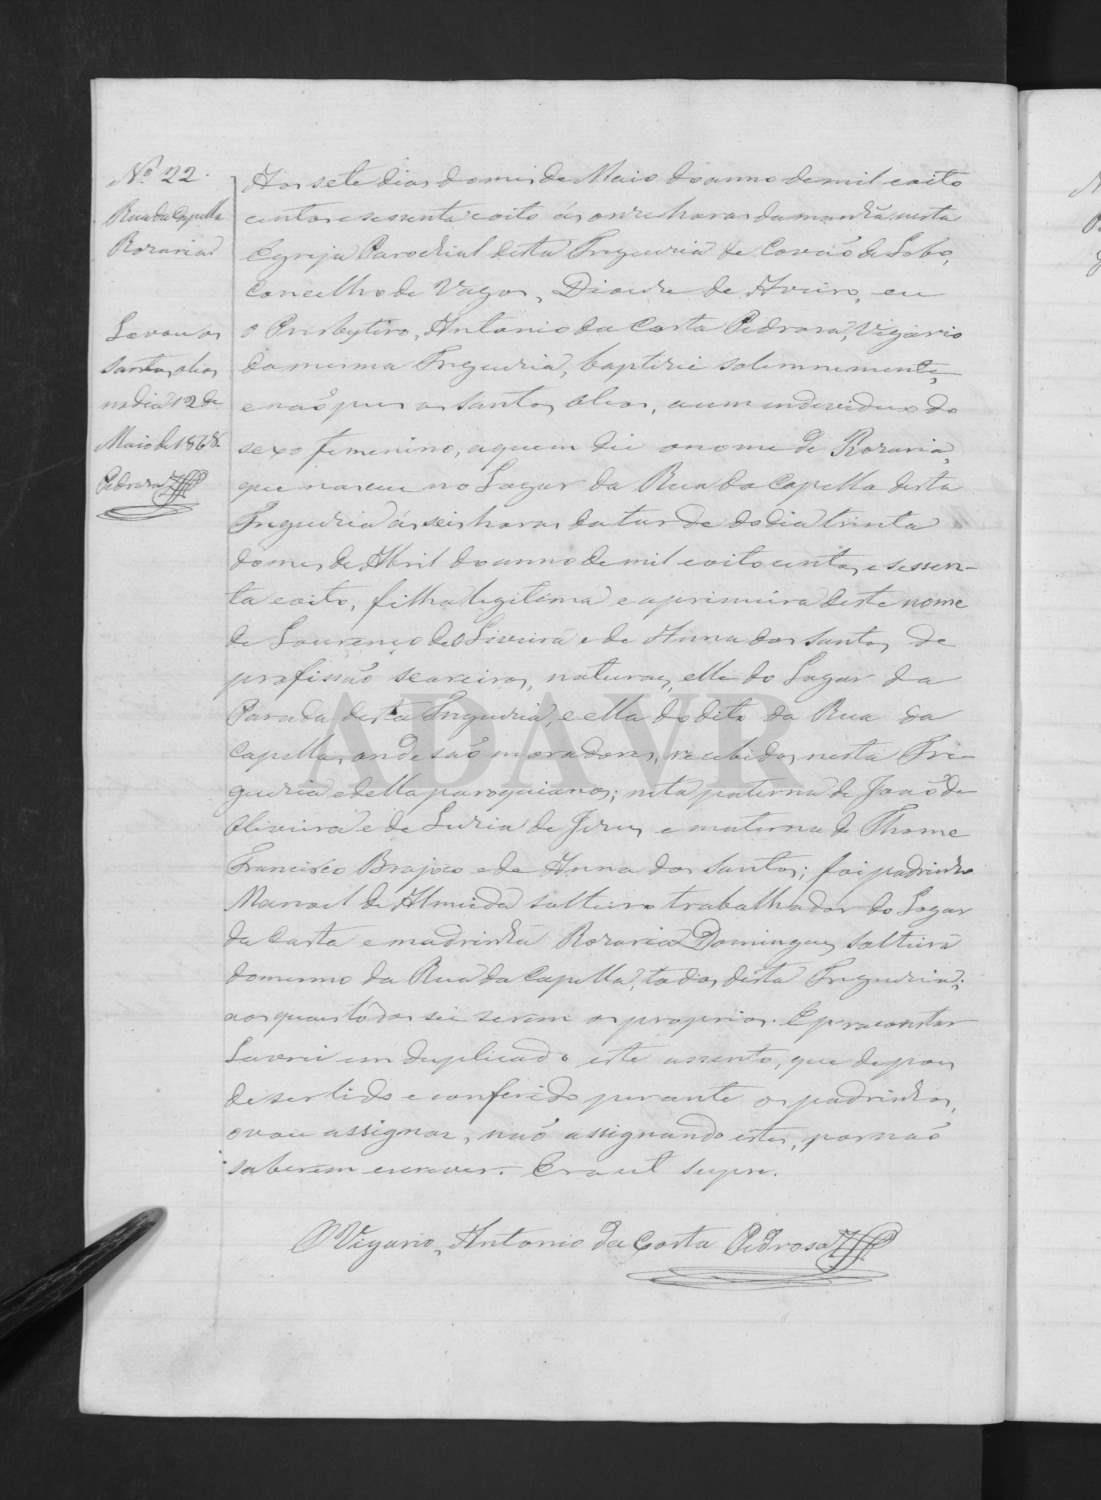 Nº 22.
Rua da Capella
Rozaria
Levou os
santos olios
no dia 12 de
Maio de 1868.
Pedrosa
Aos sete dias do mes de Maio do anno de mil e oito
centos e sessenta e oito ás onze horas da manhã nesta
Egreja Parochial desta Freguezia de Covão do Lobo,
concelho de Vagos, Diocese de Aveiro, eu
o Presbytero, Antonio da Costa Pedrosa, Vigario
da mesma Freguezia, baptizei solemnemente,
e não pus os santos olios, a um individuo do
sexo femenino, a quem dei o nome de Rozaria,
que nasceu no Logar da Rua da Capella desta
Freguezia ás seis horas da tarde do dia trinta
do mes de Abril do anno de mil e oito centos e sessen-
ta e oito, filha legitima e a primeira deste nome
de Lourenço de Oliveira e de Anna dos Santos, de
profissão seareiros, naturaes, elle do Logar da
Parada desta Freguezia, e ella do dito da Rua da
Capella, onde são moradores, recebidos nesta Fre-
guezia e della paroquianos; neta paterna de João de
Oliveira e de Luzia de Jesus e materna de Thome
Francisco e de Anna dos Santos; foi padrinho
Manoel de Almeida solteiro trabalhador do Logar
da e madrinha Rozaria Domingues, solteira
do mesmo da Rua da Capella, todos desta Freguezia;
aos quaes todos sei serem os proprios. E pra constar
Lavrei em duplicado este assento, que depois
de ser lido e conferido perante os padrinhos,
o vou assignar, não assignando estes, por não
saberem escrever. Era ut supra.
O Vigario, Antonio da Costa Pedrosa
ADAVR